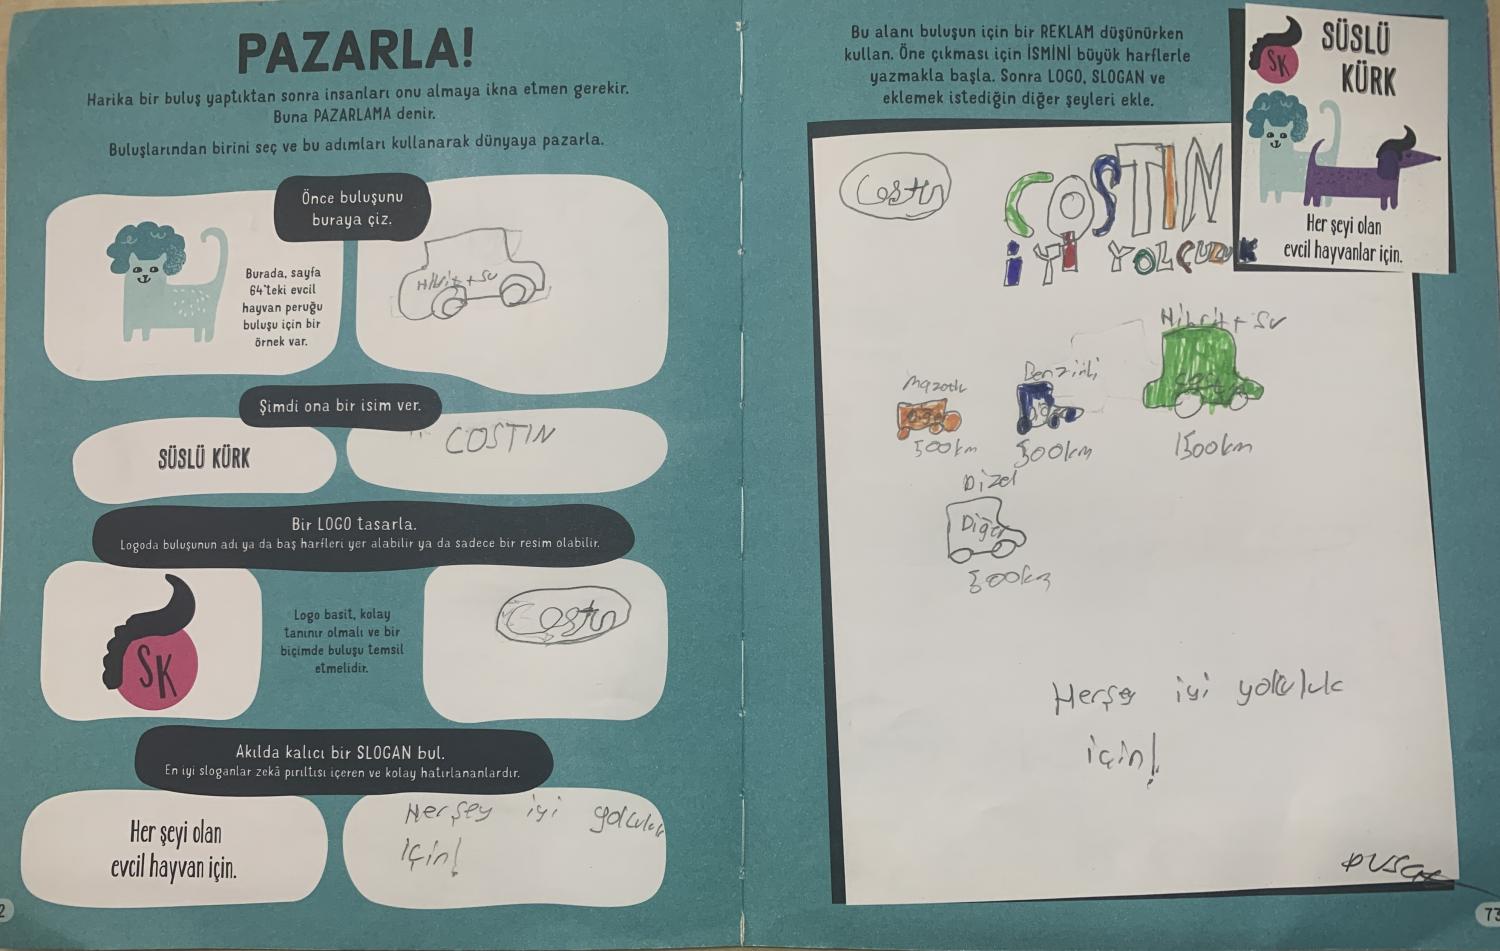 PAZARLA!
Harika bir buluş yaptıktan sonra insanları onu almaya ikna etmen gerekir.
Buna PAZARLAMA denir.
Buluşlarından birini seç ve bu adımları kullanarak dünyaya pazarla.
Önce buluşunu
buraya çiz.
Burada, sayfa
64'teki evcil
hayvan peruğu
buluşu için bir
örnek var.
Hibrit + Su
Şimdi ona bir isim ver.
SÜSLÜ KÜRK
COSTIN
Bir LOGO tasarla.
Logoda buluşunun adı ya da baş harfleri yer alabilir ya da sadece bir resim olabilir.
SK
Logo basit, kolay
tanınır olmalı ve bir
biçimde buluşu temsil
etmelidir.
Costin
Akılda kalıcı bir SLOGAN bul.
En iyi sloganlar zekâ pırıltısı içeren ve kolay hatırlananlardır.
Her şeyi olan
evcil hayvan için.
Herşey iyi yolculuk
için!
2
Bu alanı buluşun için bir REKLAM düşünürken
kullan. Öne çıkması için İSMİNİ büyük harflerle
yazmakla başla. Sonra LOGO, SLOGAN ve
eklemek istediğin diğer şeyleri ekle.
SK
SÜSLÜ
KÜRK
Her şeyi olan
evcil hayvanlar için.
Costin
COSTIN
iYi YOLÇULUK
Hibrit + Su
Mazotlu
Benzinli
500km
500km
1500km
Dizel
Diğer
500km
Herşey iyi yolculuk
için!
73